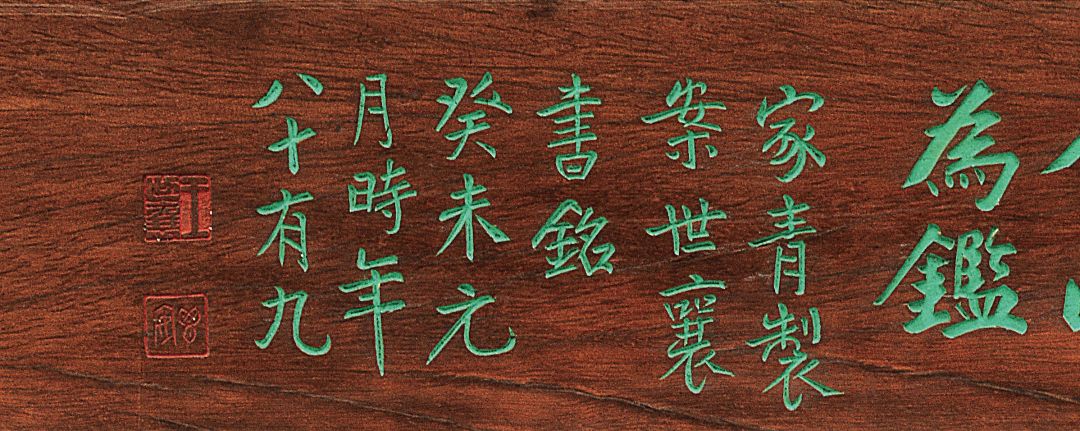 為鑑
家青製
案世襄
書銘
癸未元
月時年
八十有九